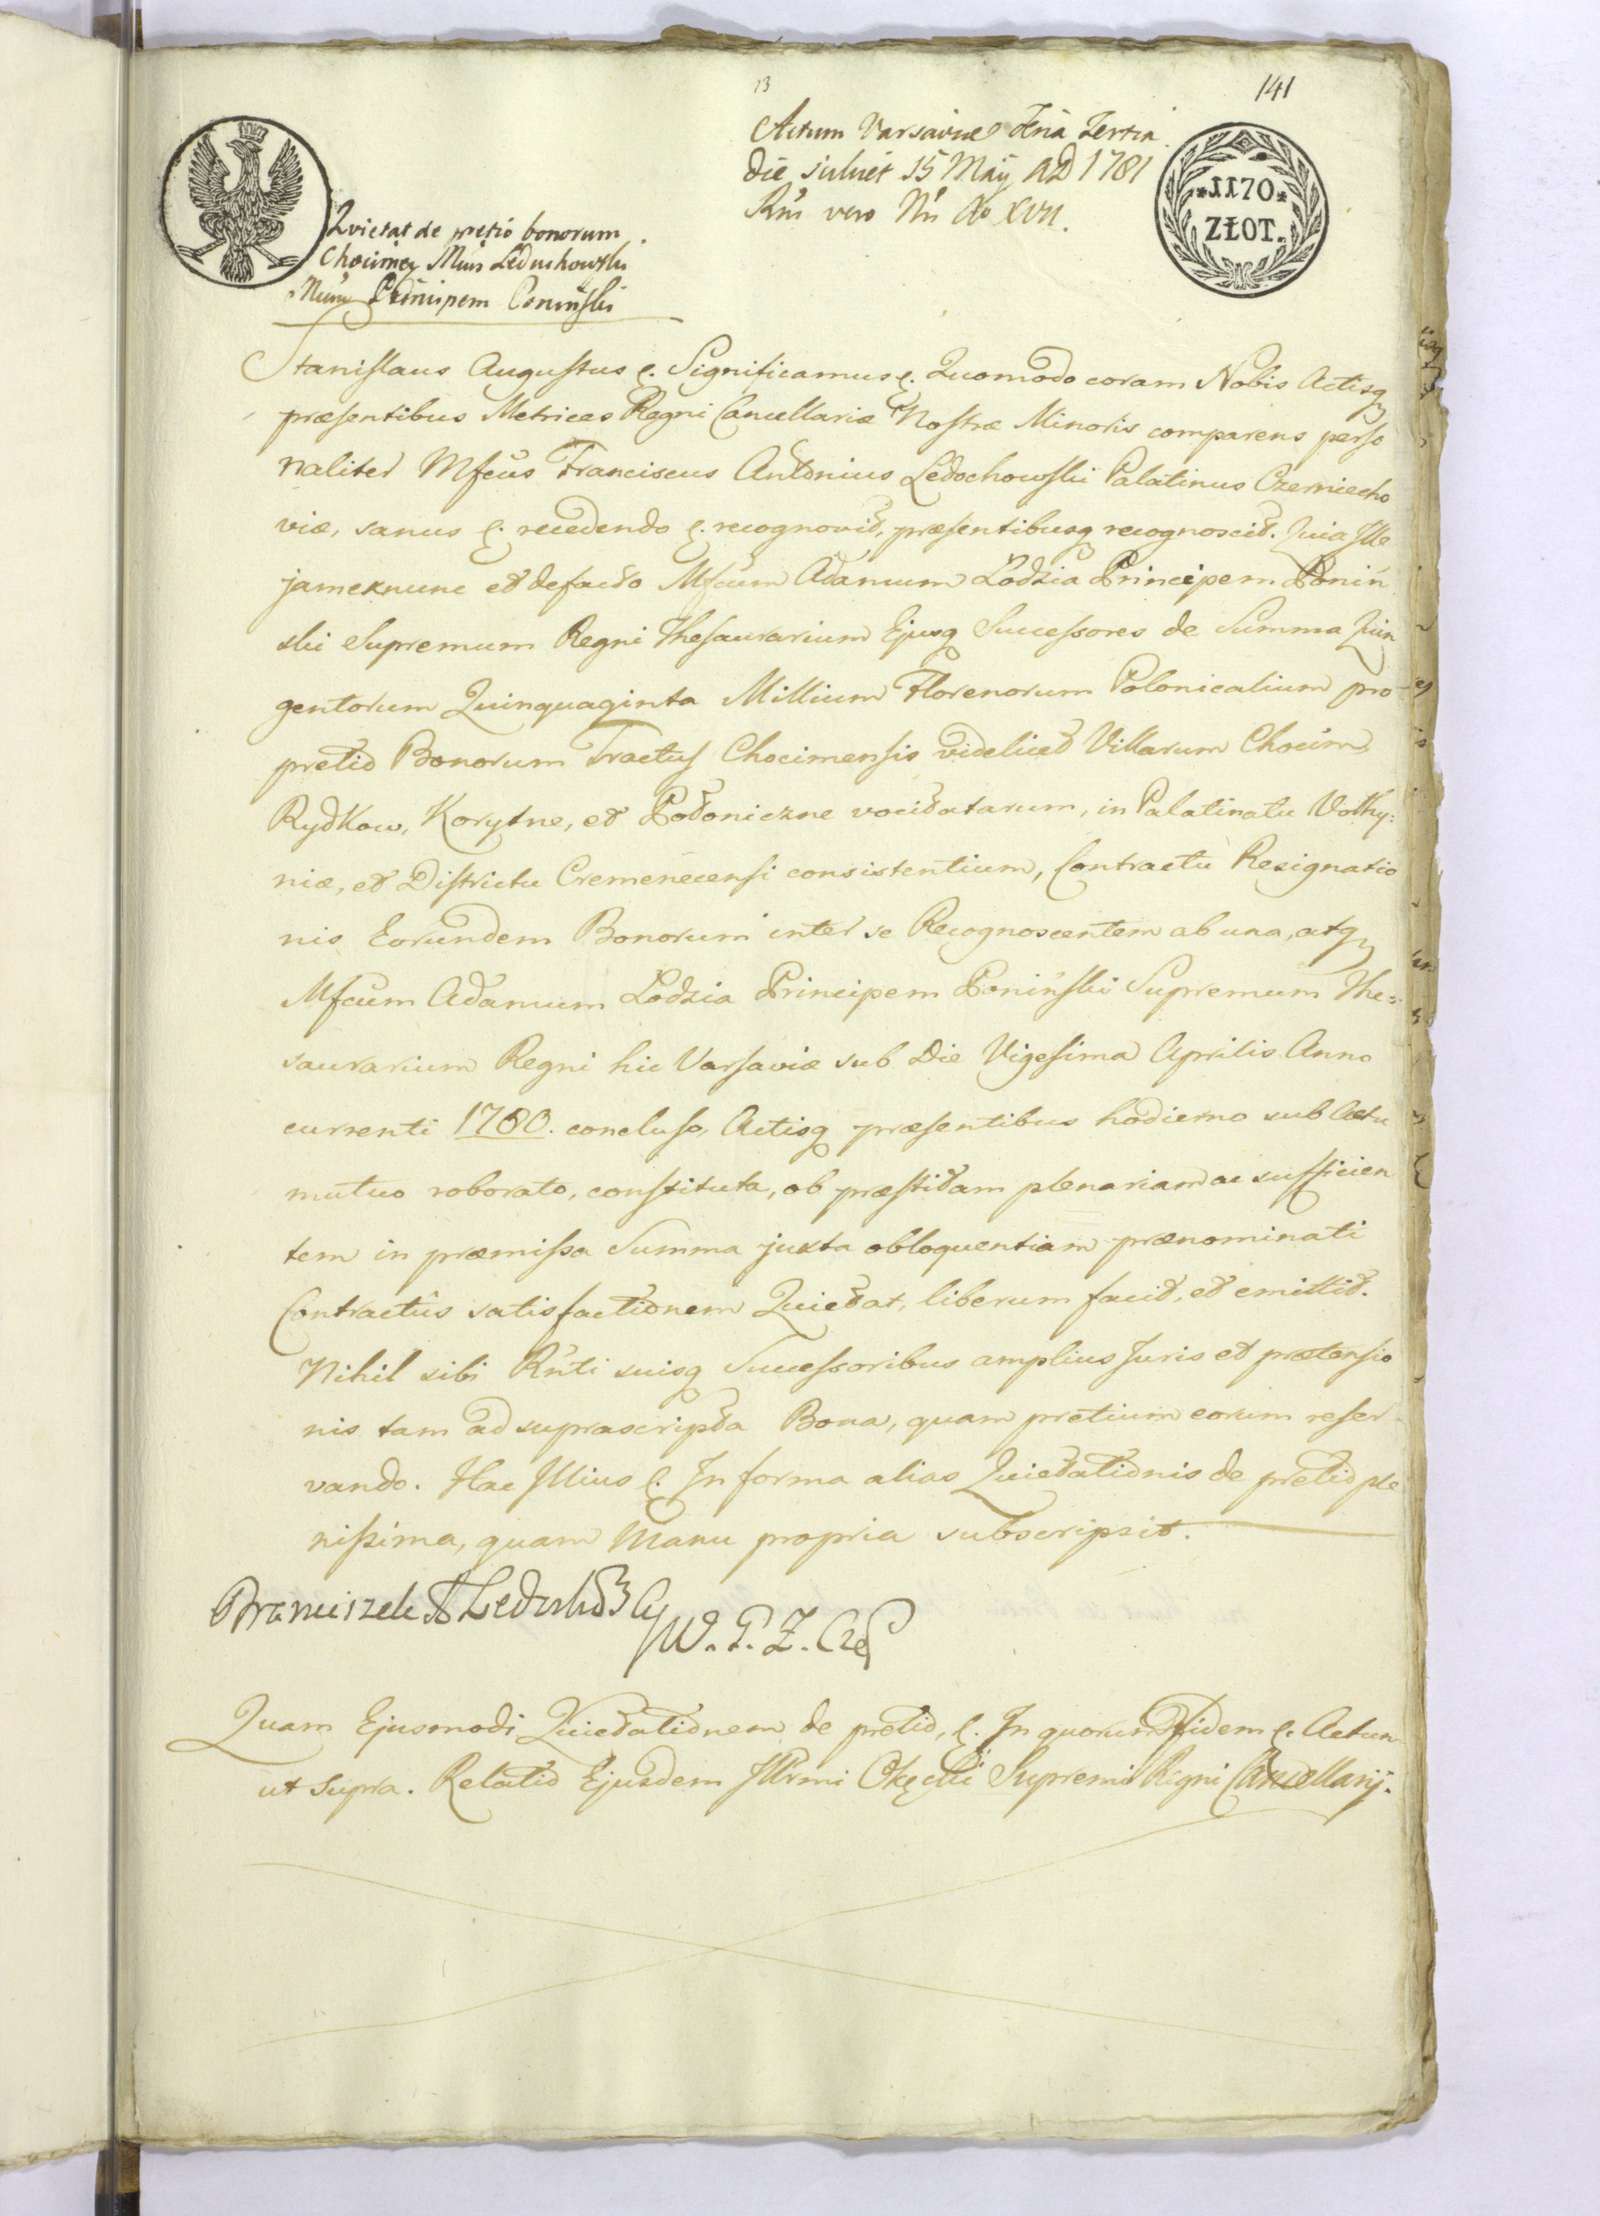 13
141
Actum Varsaviae Feria Tertia
die scilicet 15 Maij AD 1781
Rni vero Nri Ao XVII.
*1170*
ZŁOT.
Quietat de pretio bonorum
Chocimcy Mcus Leduchowski
Principem Poninski
Stanislaus Augustus &. Significamus &. Quomodo coram Nobis Actisq
præsentibus Metrices Regni Cancellariæ Nostræ Minoris comparens perso
naliter Mfcus Franciscus Antonius Ledochowski Palatinus Czerniecho
viæ, sanus &. recedendo &. recognovit, præsentibusq recognoscit. Quia Ille
jam exnunc et defacto Mfcum Adamum Lodzia Principem Poniń
ski Supremum Regni Thesaurarium Ejusq Successores de Summa Quin
gentorum Quinquaginta Millium Florenorum Polonicalium pro
pretio Bonorum Tractus Chocimensis videlicet Villarum Chocim,
Rydkow, Korytne, et Podoniczne vocitatarum, in Palatinatu Volhy:
niæ, et Districtu Cremenecensi consistentium, Contractu Resignatio
nis Eorundem Bonorum inter se Recognoscentem ab una, atq
Mfcum Adamum Lodzia Principem Poniński Supremum The=
saurarium Regni hic Varsaviæ sub Die Vigesima Aprilis Anno
currenti 1780. concluso, Actisq præsentibus hodierno sub Actu
mutuo roborato, constituta, ob præstitam plenariam ac sufficien
tem in præmissa Summa juxta obloquentiam prænominati
Contractûs satisfactionem Quietat, liberum facit, et emittit.
Nihil sibi Rnti suisq Successoribus amplius Juris et prætensio
nis tam ad suprascripta Bona, quam pretium eorum reser
vando. Hac Illius &. In forma alias Quietationis de pretio ple
nissima, quam Manu propria subscripsit.
Franciszek A Leduchowski
W. G. Z. Cze
Quam Ejusmodi Quietationem de pretio, &. In quorum Fidem &. Actum
ut Supra. Relatio Ejusdem Illrmi Okęcki Supremi Regni Cancellarij.